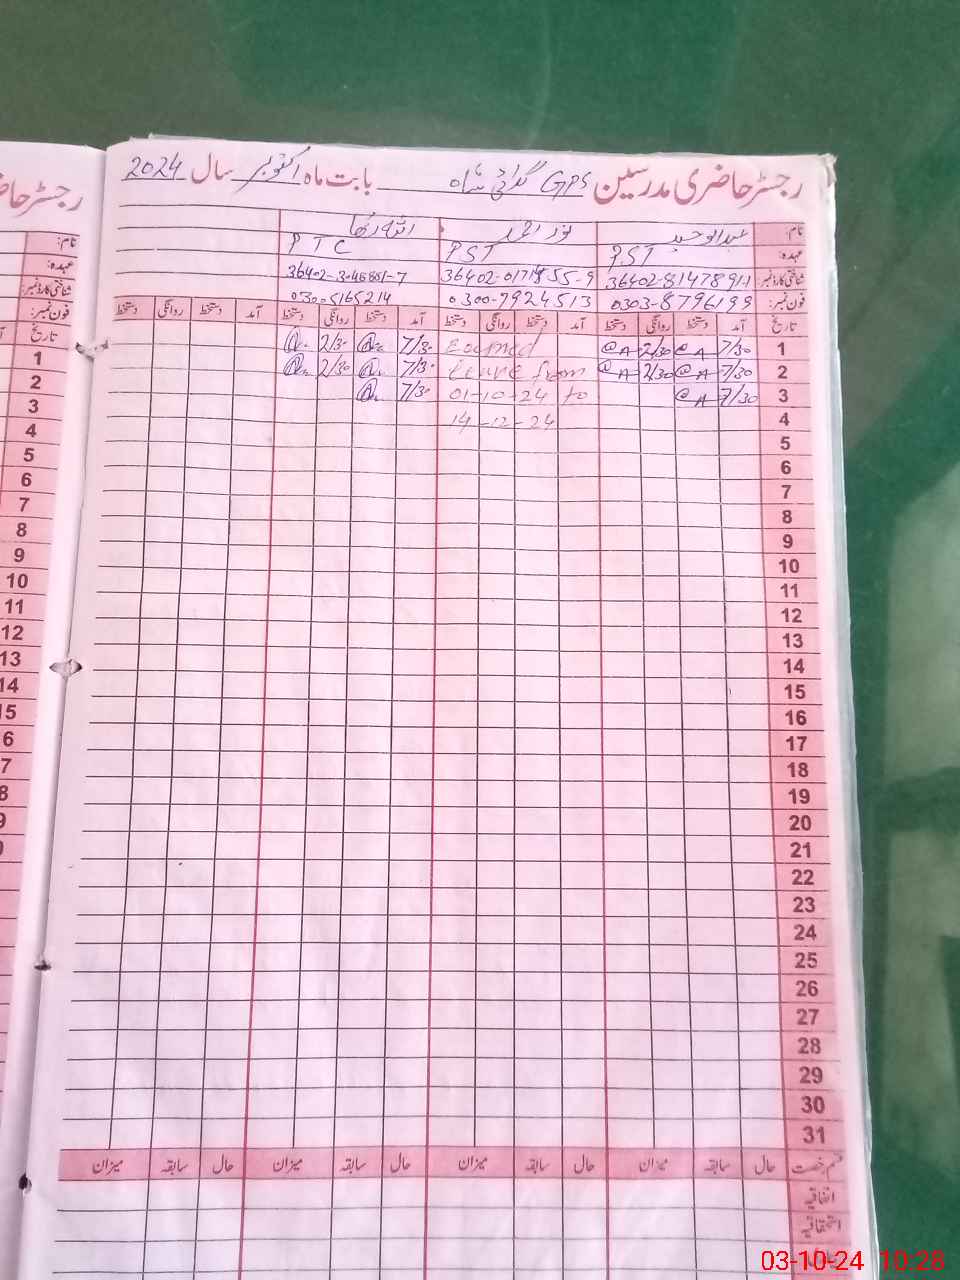 رجسٹر حاضری مدرسین GPS گدائی شاہ بابت ماہ اکتوبر سال 2024
نام: عبدالوحید نور احمد
عہدہ: PST PST PTC
شناختی کارڈ نمبر: 36402-0171 55-9
فون نمبر: 0303-8796199 0300-7924513 03005165214
تاریخ آمد دستخط روانگی دستخط آمد دستخط روانگی دستخط آمد دستخط روانگی دستخط آمد دستخط روانگی دستخط
1 7/30 @A 2/30 @A Earned 7/30 2/30
2 7/30 @A 2/30 @A leave from 7/30 2/30
3 7/30 @A 01-10-24 to 7/30
4 14-12-24
5
6
7
8
9
10
11
12
13
14
15
16
17
18
19
20
21
22
23
24
25
26
27
28
29
30
31
قسم رخصت حال سابقہ میزان حال سابقہ میزان حال سابقہ میزان حال سابقہ میزان
اتفاقیہ
استحقاقیہ
رجسٹر حا
نام:
عہدہ:
شناختی کارڈ نمبر:
فون نمبر:
تاریخ
1
2
3
4
5
6
7
8
9
10
11
12
13
14
15
6
7
8
9
03-10-24 10:28